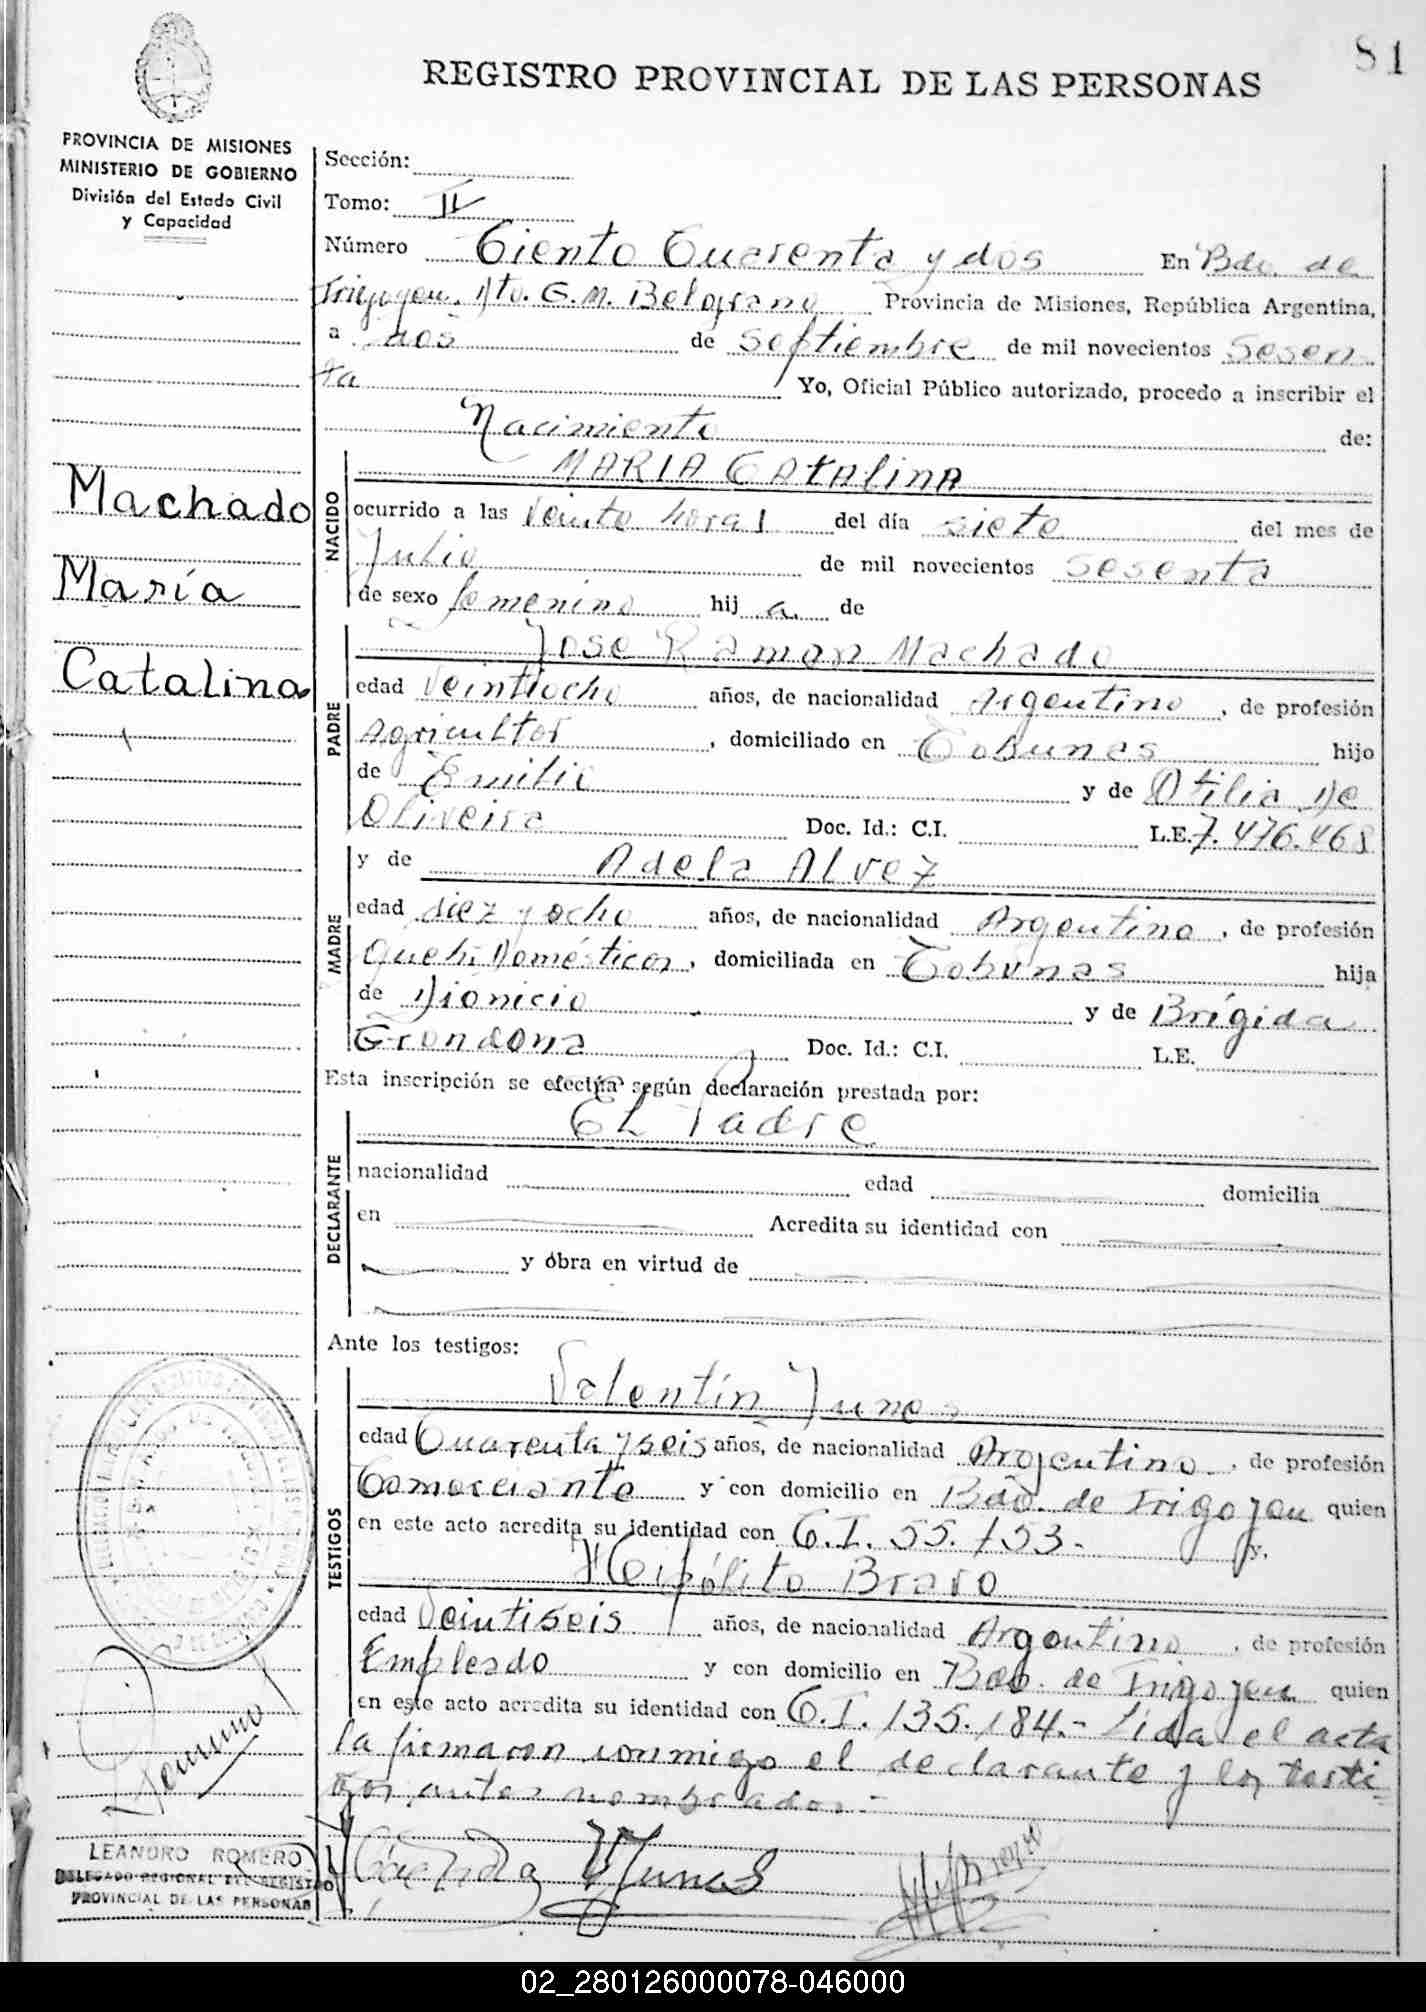 81
REGISTRO PROVINCIAL DE LAS PERSONAS
PROVINCIA DE MISIONES
MINISTERIO DE GOBIERNO
División del Estado Civil
y Capacidad
Machado
María
Catalina
Sección:
Tomo: II
Número Ciento Cuarenta y dos En Bdo. de
Irigoyen. Dto. G. M. Belgrano Provincia de Misiones, República Argentina,
a dos de Septiembre de mil novecientos Sesen
ta Yo, Oficial Público autorizado, procedo a inscribir el
Nacimiento de:
NACIDO
MARIA CATALINA
ocurrido a las Veinte horas del día siete del mes de
Julio de mil novecientos sesenta
de sexo femenino hij a de
PADRE
Jose Ramon Machado
edad Veintiocho años, de nacionalidad Argentino, de profesión
Agricultor, domiciliado en Tobunas hijo
de Emilio y de Otilia De
Oliveira Doc. Id.: C.I. L.E. 7.476.468
MADRE
y de Adela Alvez
edad diez y ocho años, de nacionalidad Argentina, de profesión
Queh. Domésticos, domiciliada en Tobunas hija
de Dionicio y de Brígida
Grondona Doc. Id.: C.I. L.E.
Esta inscripción se efectúa según declaración prestada por:
DECLARANTE
El Padre
nacionalidad edad domicilia
en Acredita su identidad con
y obra en virtud de
Ante los testigos:
TESTIGOS
Valentín
edad Cuarenta y seis años, de nacionalidad Argentino, de profesión
Comerciante y con domicilio en Bdo. de Irigoyen quien
en este acto acredita su identidad con C.I. 55.153.- y.
Heipólito Bravo
edad Veintiseis años, de nacionalidad Argentino, de profesión
Empleado y con domicilio en Bdo. de Irigoyen quien
en este acto acredita su identidad con C.I. 135.184.- Lida el acta
la firmaron conmigo el declarante y los testi
gos antes nombrados.-
LEANDRO ROMERO
DELEGADO REGIONAL DEL REGISTRO
PROVINCIAL DE LAS PERSONAS
02_280126000078-046000